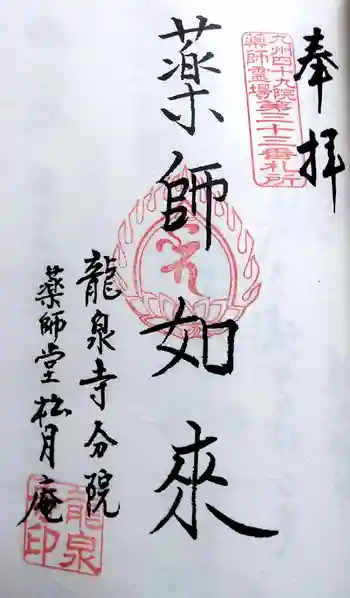 奉拝
九州四十九院
薬師霊場第三十三番札所
薬師如來
龍泉寺分院
薬師堂松月庵
龍泉